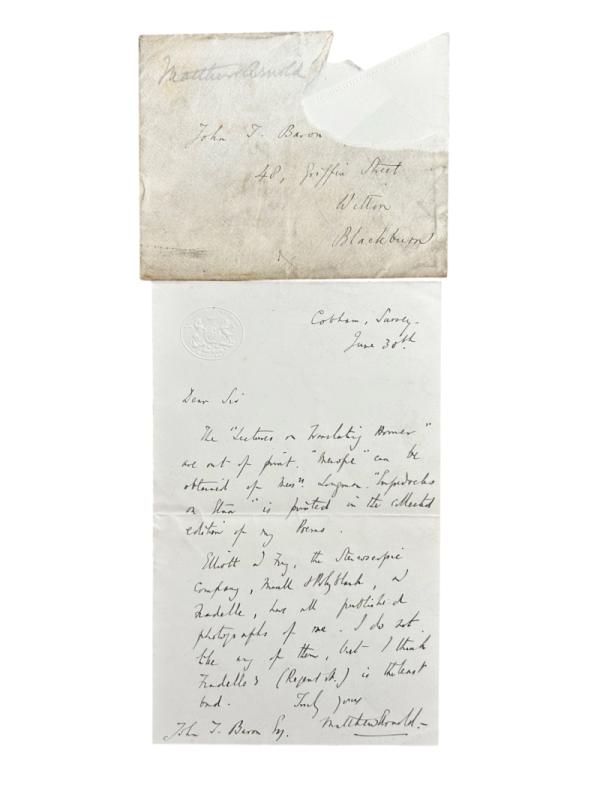 Matthew Arnold
John T. Baron
48, Griffin Street
Witton
Blackburn
Cobham, Surrey.
June 30th.
Dear Sir
The "Lectures on Translating Homer"
are out of print. "Merope" can be
obtained of Messrs. Longman. "Empedocles
on Etna" is printed in the collected
edition of my Poems.
Elliott & Fry, the Stereoscopic
Company, Maull & Polyblank, and
Fradelle, have all published
photographs of me. I do not
like any of them, but I think
Fradelle's (Regent St.) is the least
bad. Truly yours
Matthew Arnold.—
John T. Baron Esq.